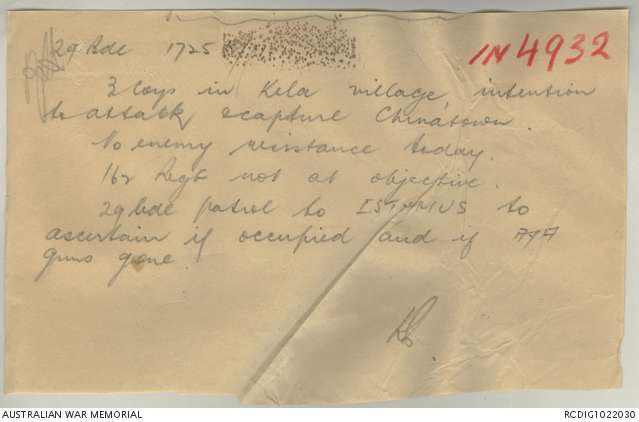 29 Bde 1725
IN 4932
3 Coys in Kela village intention
to attack & capture Chinatown.
No enemy resistance today.
162 Regt not at objective.
29 bde patrol to ISTHMUS to
ascertain if occupied and if A/A
guns gone.
AUSTRALIAN WAR MEMORIAL
RCDIG1022030